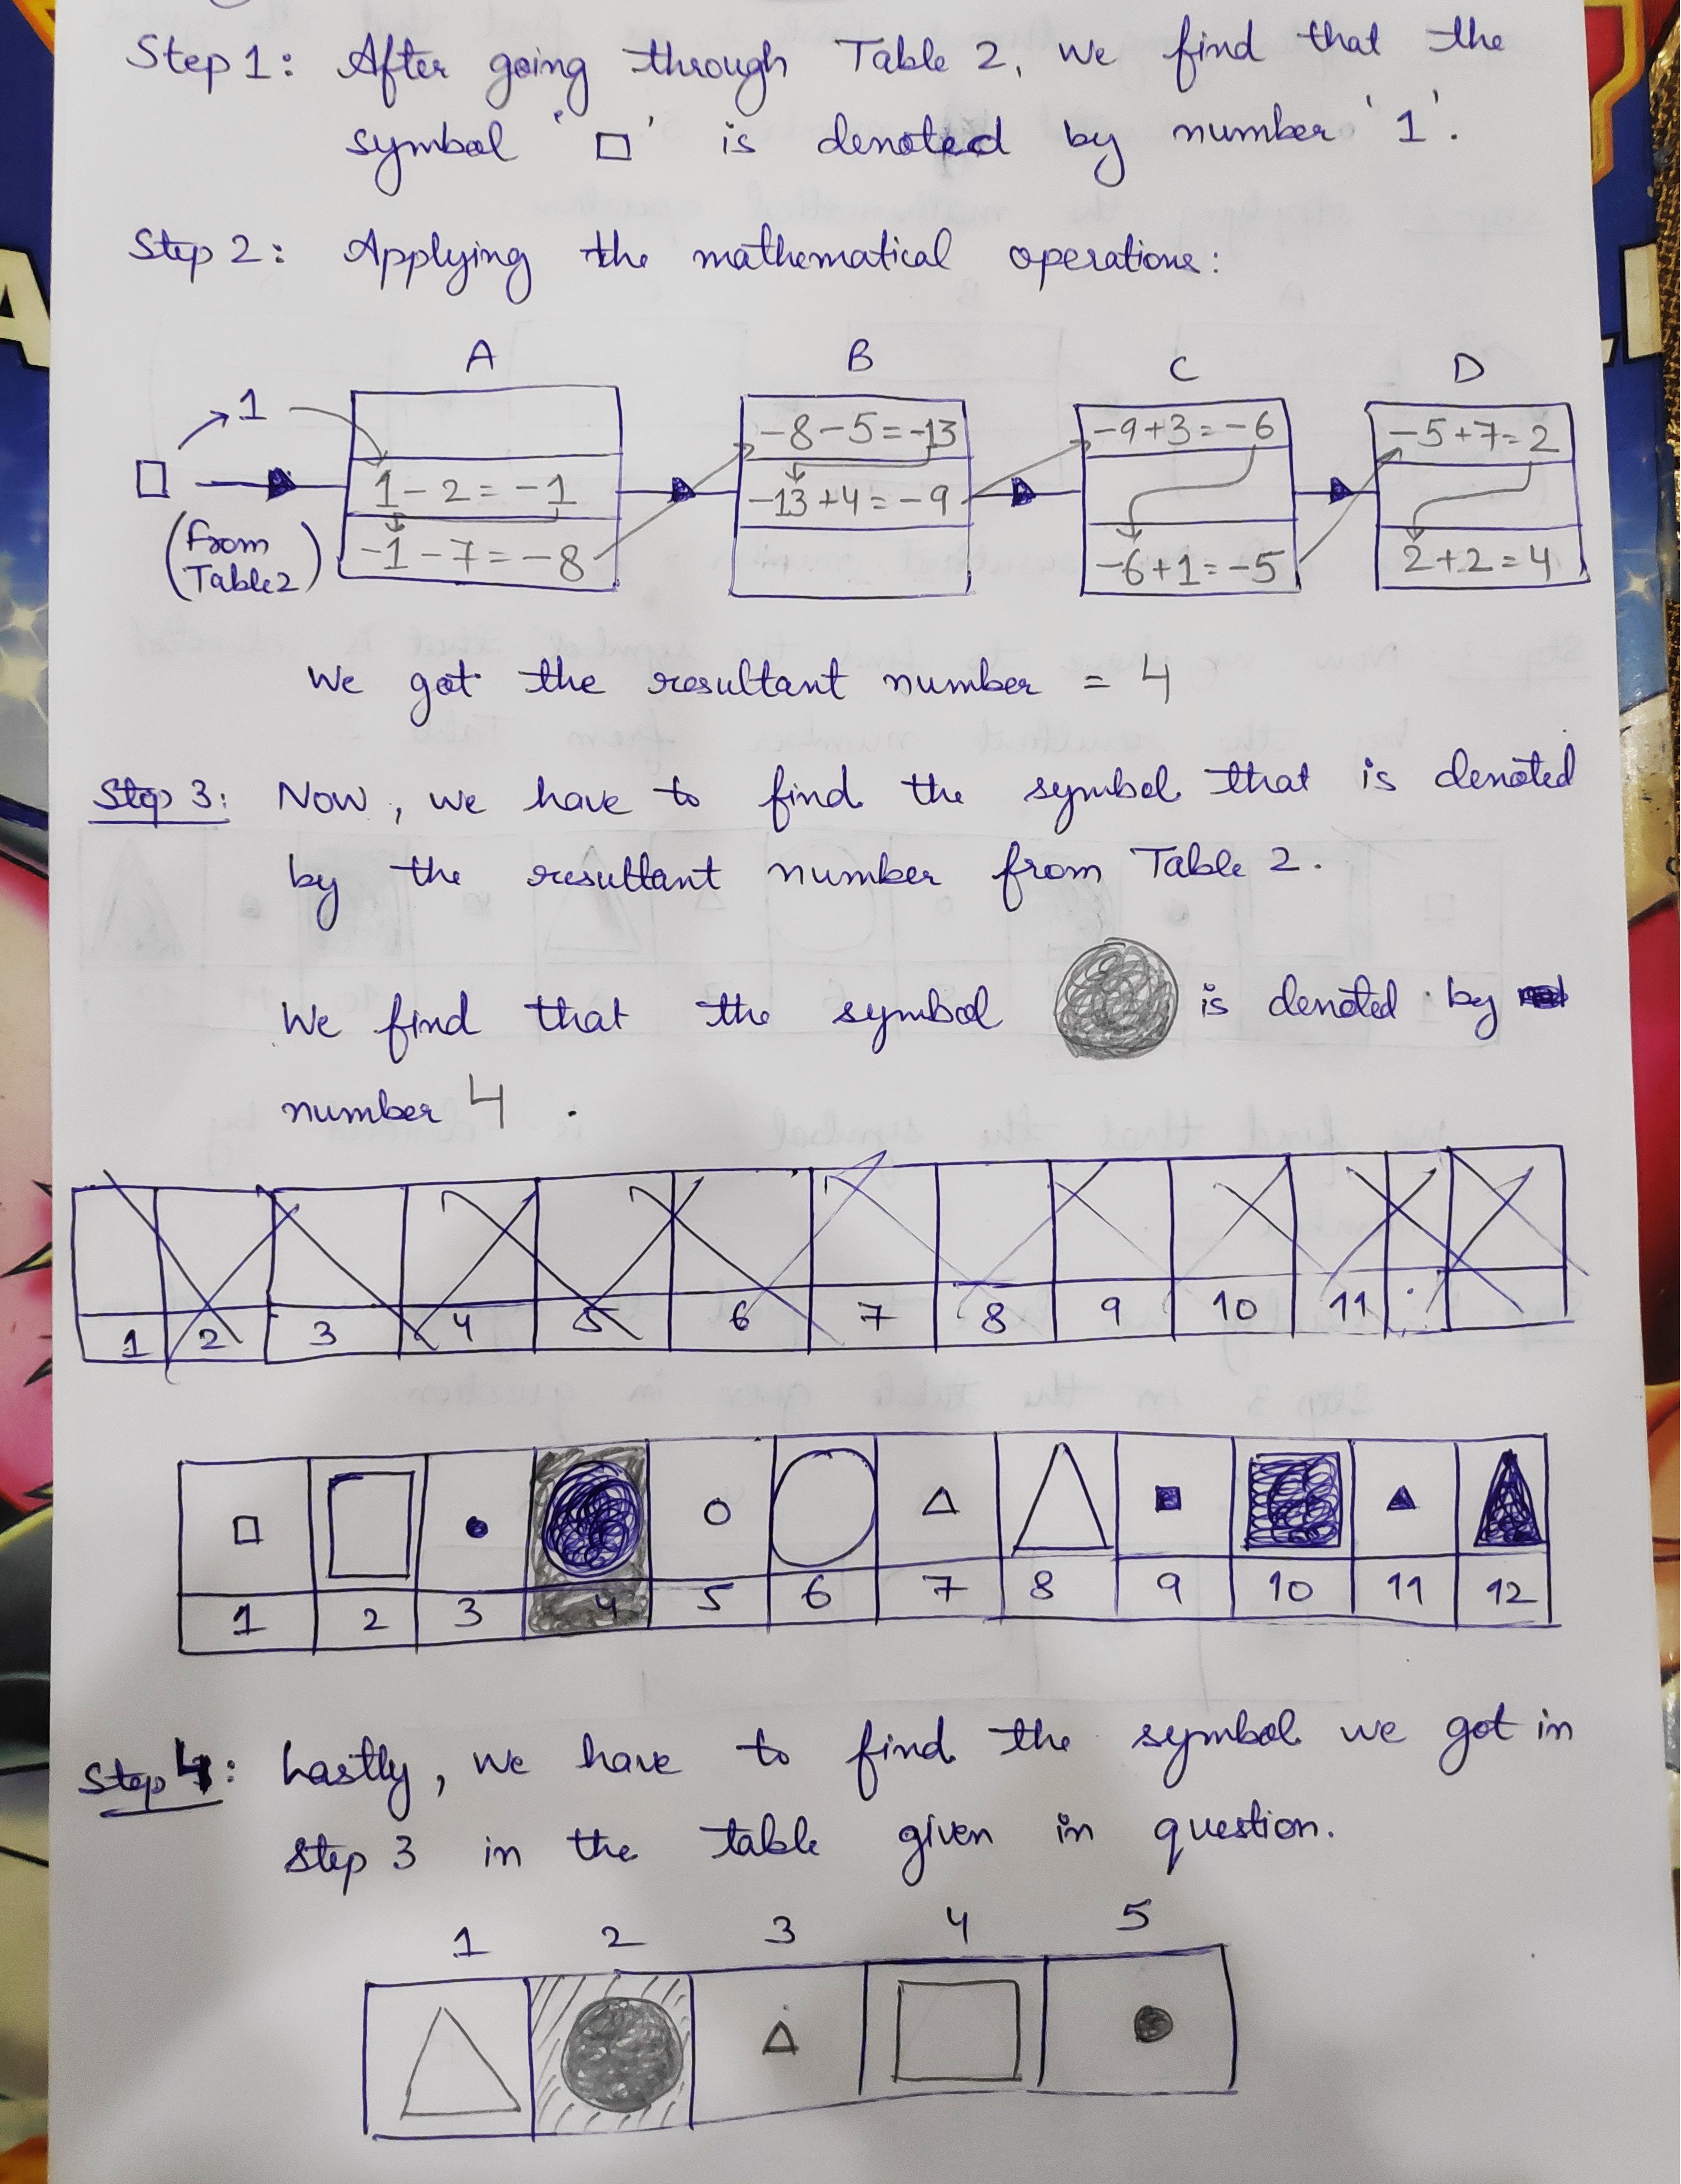 Step 1: After going through Table 2, we find that the
symbol '□' is denoted by number '1'.
Step 2: Applying the mathematical operations:
A B C D
1
-8-5=-13
-9+3=-6
-5+7=2
1-2=-1
-13+4=-9
-1-7=-8
-6+1=-5
2+2=4
(from
Table 2)
We got the resultant number = 4
Step 3: Now, we have to find the symbol that is denoted
by the resultant number from Table 2.
We find that the symbol is denoted by
number 4.
1 2 3 4 5 6 7 8 9 10 11
1 2 3 4 5 6 7 8 9 10 11 12
Step 4: Lastly, we have to find the symbol we got in
step 3 in the table given in question.
1 2 3 4 5